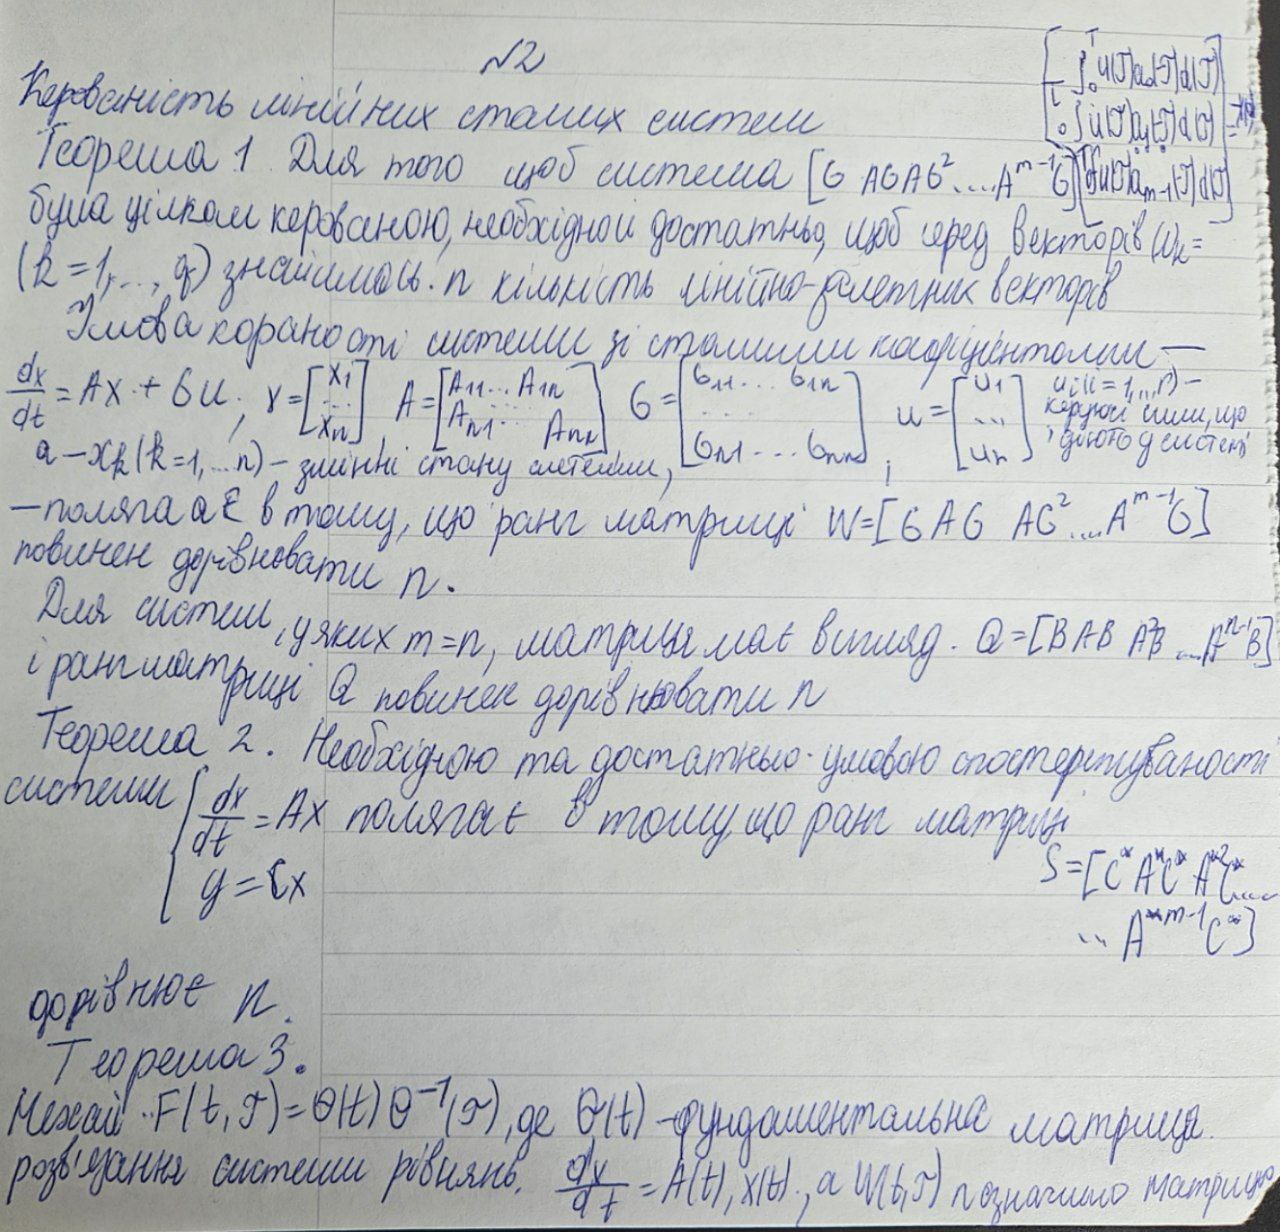 №2
Керованість лінійних сталих систем
Теорема 1. Для того щоб система [G AG AG² ... A^{m-1}G] [∫₀ᵗ u(τ)a₀(τ)d(τ) ∫₀ᵗ u(τ)a₁(τ)d(τ) ... ∫u(τ)a_{m-1}(τ)d(τ)] =
була цілком керованою, необхідно й достатньо, щоб серед векторів ω_k=
(k=1,..., q) знайшлось n кількість лінійно-залетник векторів
Умова кораності системи зі сталими коефіцієнтами —
dx/dt = Ax + Gu, x=[x₁ ... xₙ], A=[A₁₁...A₁ₙ Aₙ₁... Aₙₙ] G=[G₁₁...G₁ₙ .... Gₙ₁...Gₙₙ], u=[u₁ ... uₙ] uᵢ(i=1,...,n) – керуючі сили, що діють у системі
а – x_k (k=1,...n) – змінні стану системи,
– поляга ає в тому, що ранг матриці W=[G AG AG²...A^{m-1}G]
повинен дорівнювати n.
Для систем, у яких m=n, матриця має вигляд. Q=[B AB A²B ...A^{n-1}B]
і ранг матриці Q повинен дорівнювати n
Теорема 2. Необхідною та достатньо умовою спостерігуваності
системи { dx/dt = Ax полягає в тому що ранг матриці
y = Cx S=[C* A*C* A*²C*...
... A*^{m-1}C*]
дорівнює n.
Теорема 3.
Нехай F(t,τ)=θ(t)θ⁻¹(τ), де θ(t) – фундаментальна матриця
розв'язання системи рівнянь. dx/dt = A(t), x(t), а W(t,τ) позначимо матрицю